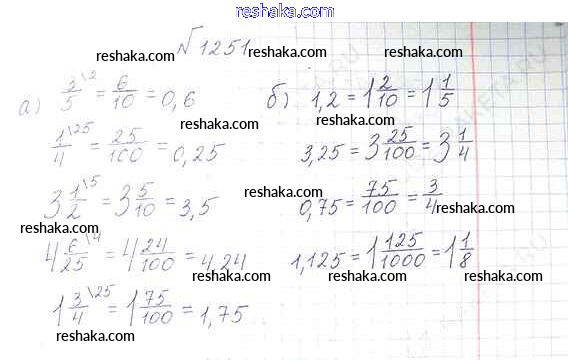 www.reshaka.com
√1251 reshaka.com
reshaka.com
а) 3/5 \2 = 6/10 = 0,6 б) 1,2 = 1 2/10 = 1 1/5
reshaka.com reshaka.com
1/4 \25 = 25/100 = 0,25 3,25 = 3 25/100 = 3 1/4
reshaka.com reshaka.com
3 1/2 \5 = 3 5/10 = 3,5 0,75 = 75/100 = 3/4
reshaka.com reshaka.com reshaka.com
4 6/25 \4 = 4 24/100 = 4,24 1,125 = 1 125/1000 = 1 1/8
reshaka.com reshaka.com reshaka.com reshaka.com
1 3/4 \25 = 1 75/100 = 1,75
reshaka.com reshaka.com
reshaka.com